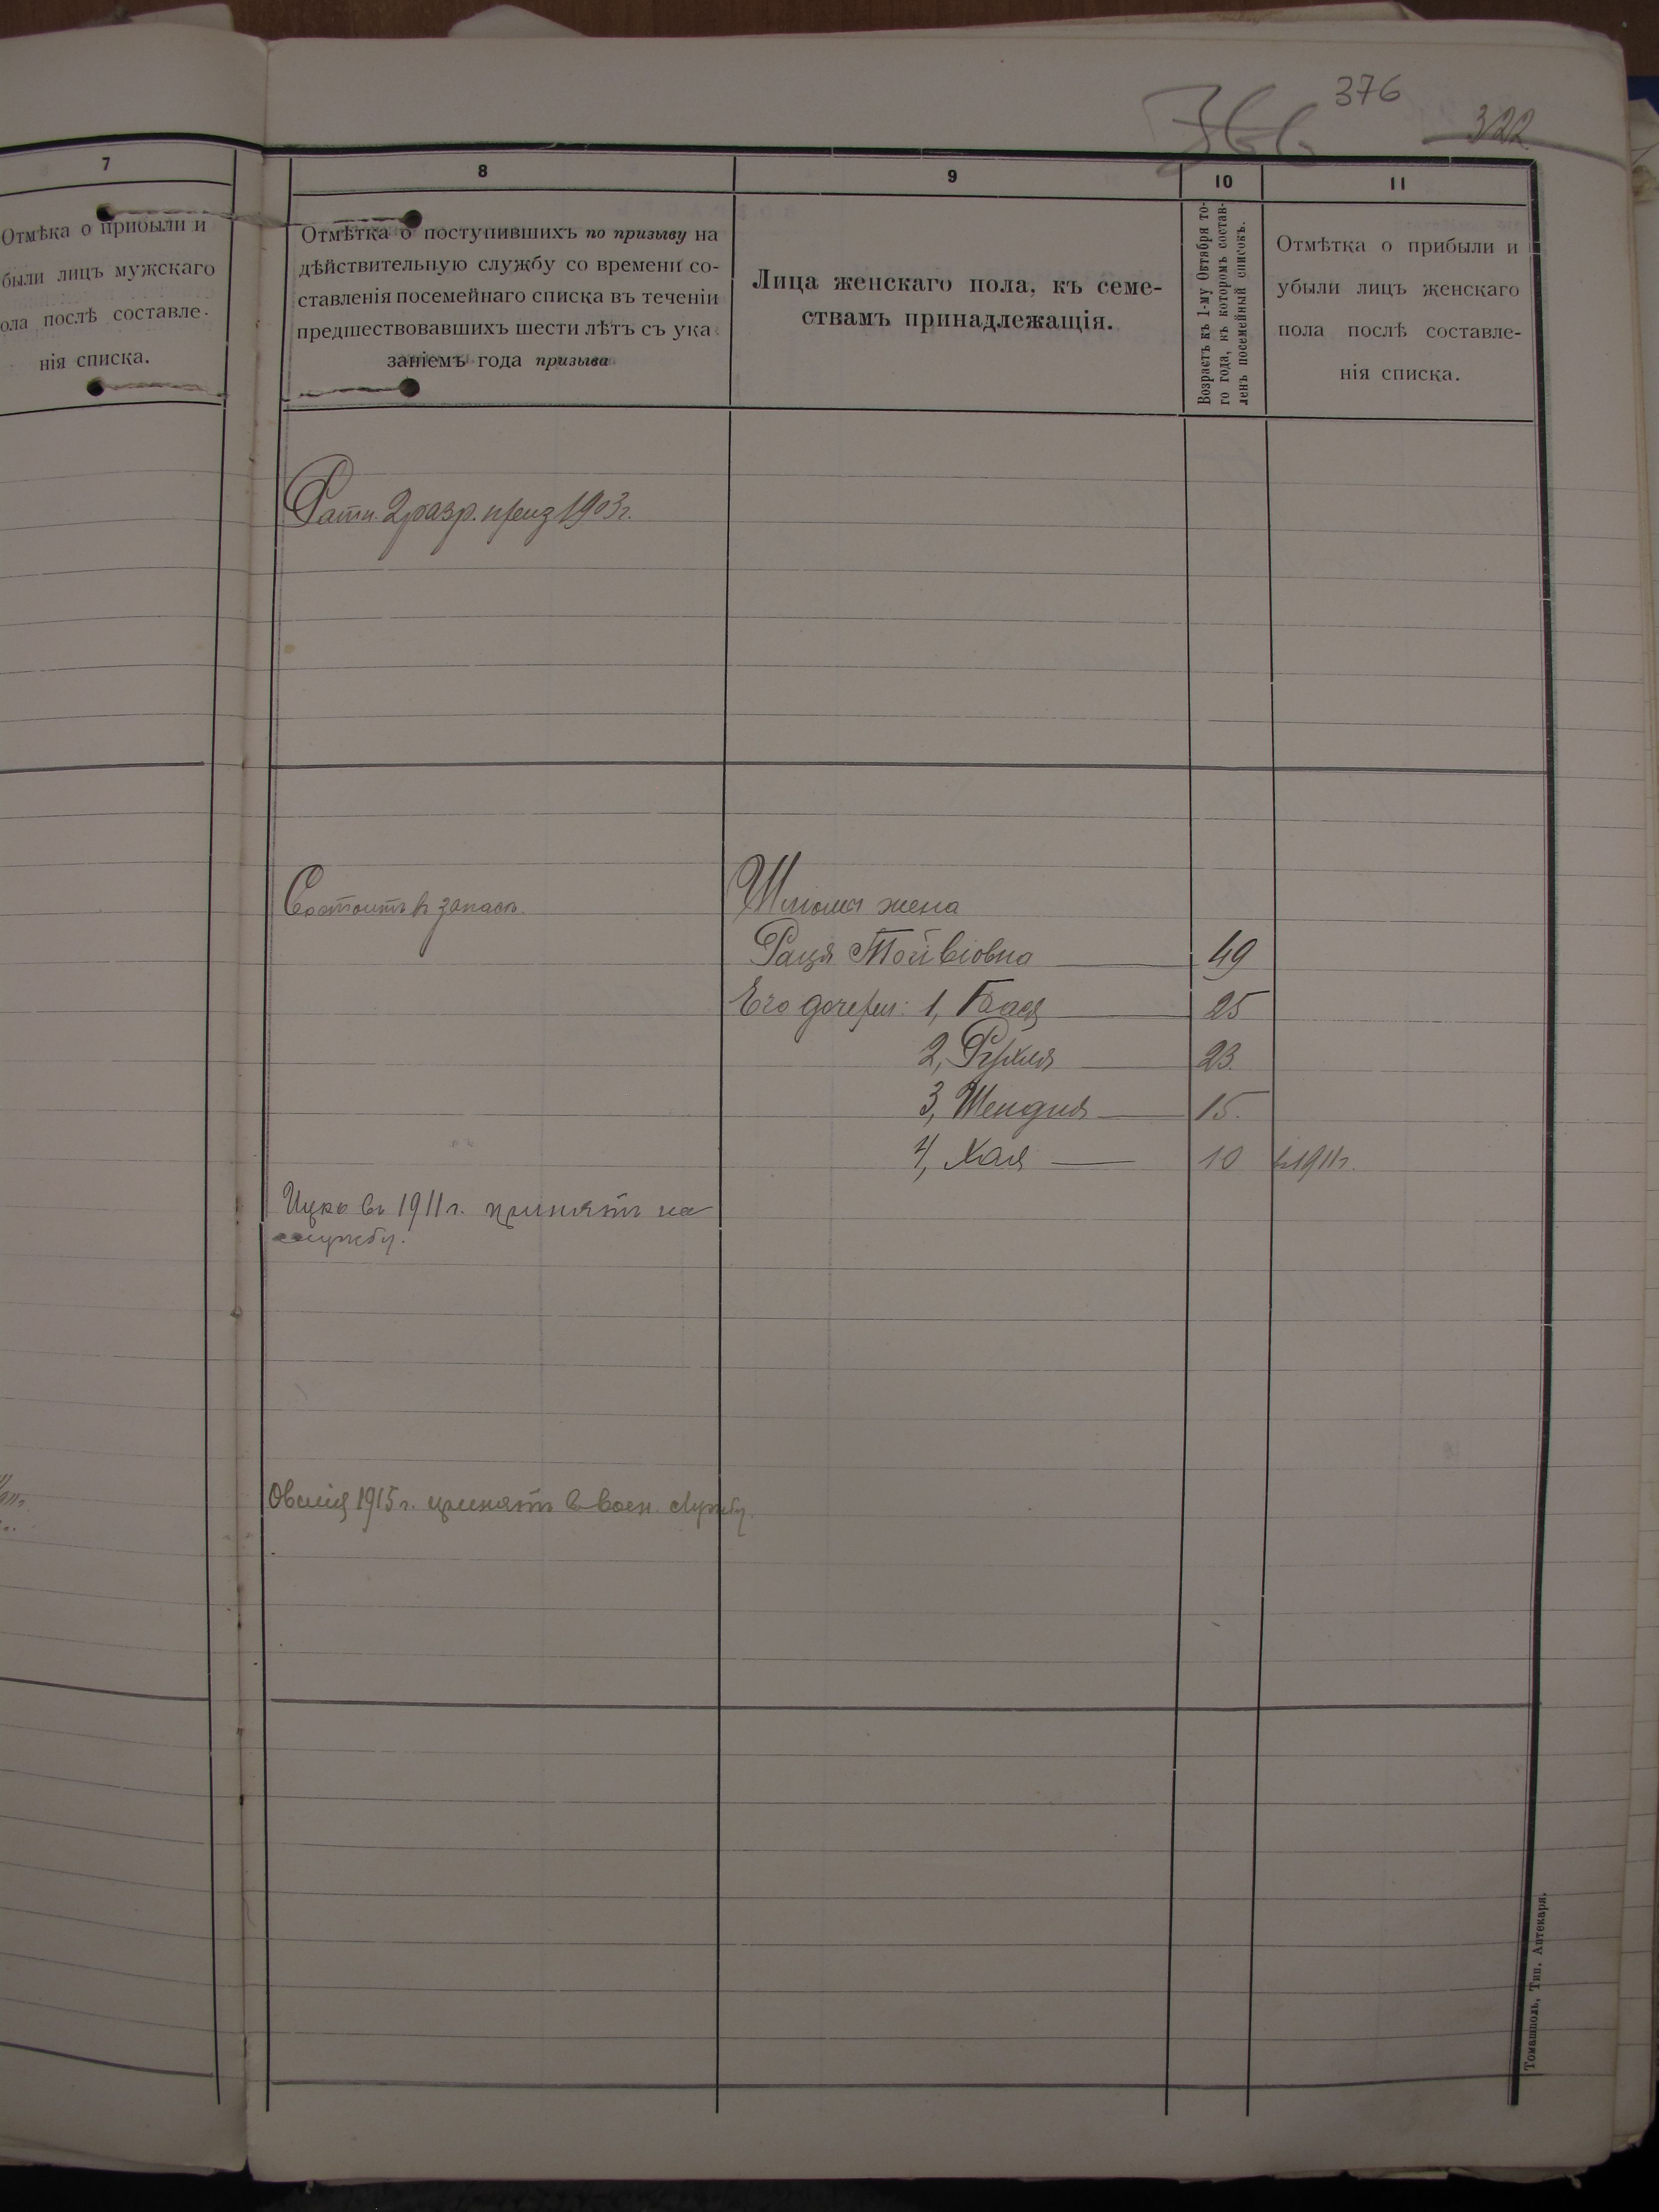 376
366
322
7
Отмѣка о прибыли и
были лицъ мужскаго
ола послѣ составле-
нія списка.
8
Отмѣтка о поступившихъ по призыву на
дѣйствительную службу со времени со-
ставленія посемейнаго списка въ теченіи
предшествовавшихъ шести лѣтъ съ ука
заніемъ года призыва
9
Лица женскаго пола, къ семе-
ствамъ принадлежащія.
10
Возрастъ къ 1-му Октября то-
го года, къ которомъ состав-
ленъ посемейный списокъ.
11
Отмѣтка о прибыли и
убыли лицъ женскаго
пола послѣ составле-
нія списка.
Ратн. 2 разр. приз 1903 г.
Состоитъ в запасѣ.
Шлiома жена
Раця 49
Его дочери: 1, Бася 25
2, Рухля 23.
3, Шендля 15.
4, Хая 10 в 1911 г.
Ицко въ 1911 г. принятъ на
службу.
Овсій 1915 г. принятъ в воен. службу.
Томашполь, Тип. Аптекаря.